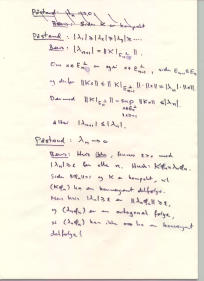 Påstand: λₙ → 0
Bevis: Siden K er kompakt
Påstand: |λ₁| ≥ |λ₂| ≥ |λ₃| ≥ ...
Bevis: |λₙ₊₁| = ‖K|
Om x ∈ er også x ∈ , siden
og derfor ‖Kx‖ ≤ ‖K| ‖·‖x‖ = |λₙ|·‖x‖
Dermed ‖K| ‖ = sup ‖Kx‖ ≤ |λₙ|
altså |λₙ₊₁| ≤ |λₙ|.
Påstand: λₙ → 0
Bevis: Hvis ikke, finnes ε>0 med
|λₙ| ≥ ε for alle n.
Siden og K er kompakt, vil
(Kφₙ) ha en konvergent delfølge.
Men hvis |λₙ| ≥ ε er ‖λₙφₙ‖ ≥ ε,
og (λₙφₙ) er en ortogonal følge,
så (λₙφₙ) kan ikke ha en konvergent
delfølge!